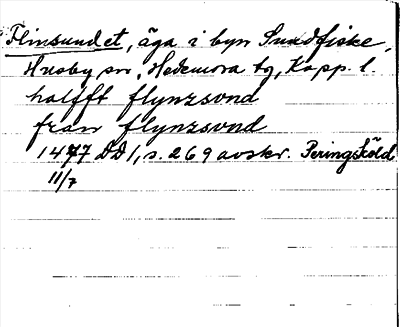 Flinsundet, äga i byn Sundfiske,
Husby sn, Hedemora tg, Kopp. l.
halfft flynzsvnd
från flynzsvnd
1477 DD 1, s. 269 avskr. Peringsköld
11/7